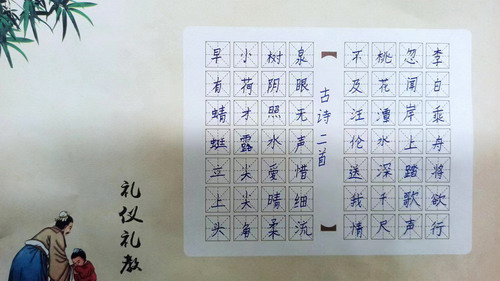 李白乘舟将欲行
忽闻岸上踏歌声
桃花潭水深千尺
不及汪伦送我情
古诗二首
泉眼无声惜细流
树阴照水爱晴柔
小荷才露尖尖角
早有蜻蜓立上头
礼仪礼教